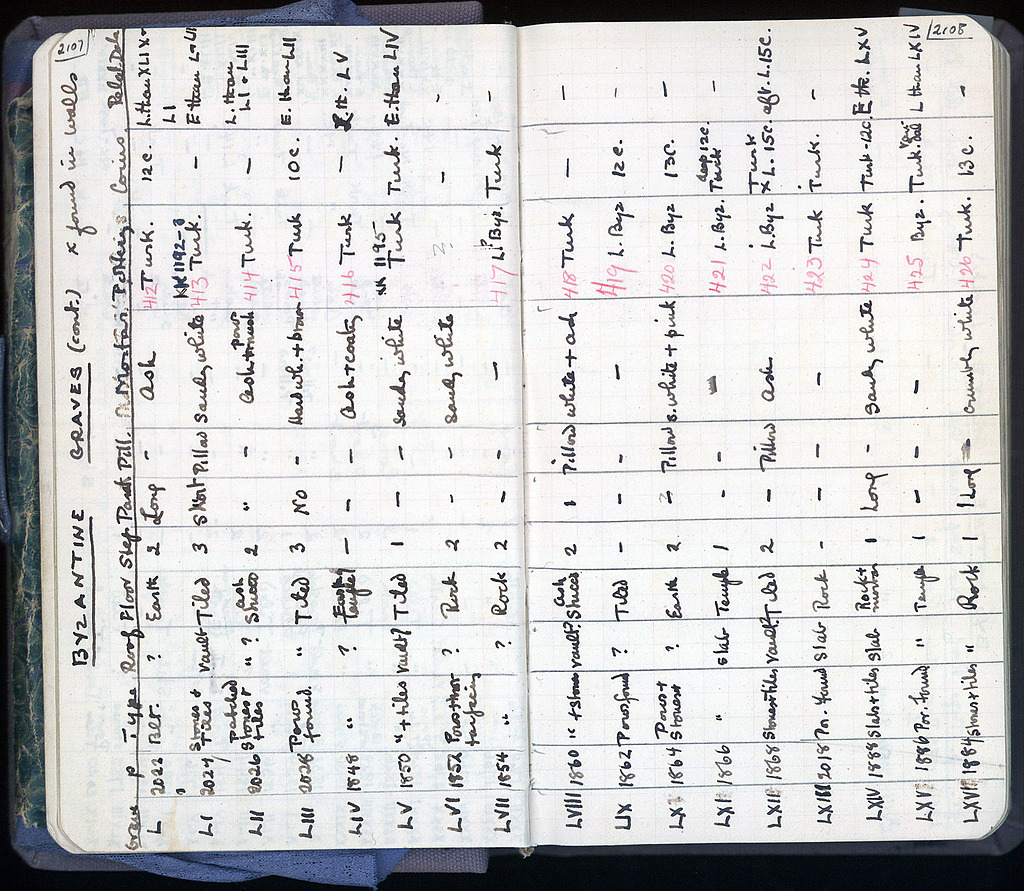 2107
BYZANTINE GRAVES (cont.) x found in walls
Grave p Type Roof Floor Step Pill. Mortar Coins Relat. Date
L 2022 ? Earth 2 Long - Ash 412 Turk. 12c. L. than XLI x
LI 2024 Stones + Tiles Vault Tiled 3 Short Pillow Sandy white KK 1192-3 413 Turk. - LI E than
LII 2026 patched Stones + tiles " ? Ash Stucco 2 " - Ash + 414 Turk. - L. than LI + LIII
LIII 2028 Poros found " Tiled 3 No - Hard wh. + brown 415 Turk 10c. E. than LII
LIV 1848 " ? Temple? - - - Ash + coaly 416 Turk - LV
LV 1850 " + tiles Vault? Tiled 1 - - Sandy white 1195 Turk Turk. E. than LIV
LVI 1852 Poros + ? Rock 2 - - Sandy white ? - -
LVII 1854 " ? Rock 2 - - - 417 L? Byz. Turk -
2108
LVIII 1860 " + Stones Vault? Ash Stucco 2 1 Pillow white + ash 418 Turk - -
LIX 1862 Poros found ? Tiled - - - - 419 L. Byz 12c. -
LX 1864 Poros + Stones + ? Earth 2 ? Pillow s. white + pink 420 L. Byz 13c. -
LXI 1866 " Slab Temple 1 - - - 421 L. Byz. deep 12c. Turk -
LXII 1868 Stones + tiles Vault? Tiled 2 - Pillow Ash 422 L. Byz Turk x L. 15c. aft. L. 15c.
LXIII 2018 Por. found Slab Rock - - - - 423 Turk Turk. -
LXIV 1888 Slabs + tiles Slab Rock + mortar 1 Long - Sandy white 424 Turk Turk - 12c. E the. LXV
LXV 1886 Por. found " Temple 1 - - - 425 Byz. Turk. L than LXIV
LXVI 1884 Stones + tiles " Rock 1 1 Long - Crumbly white 426 Turk. 13c. -